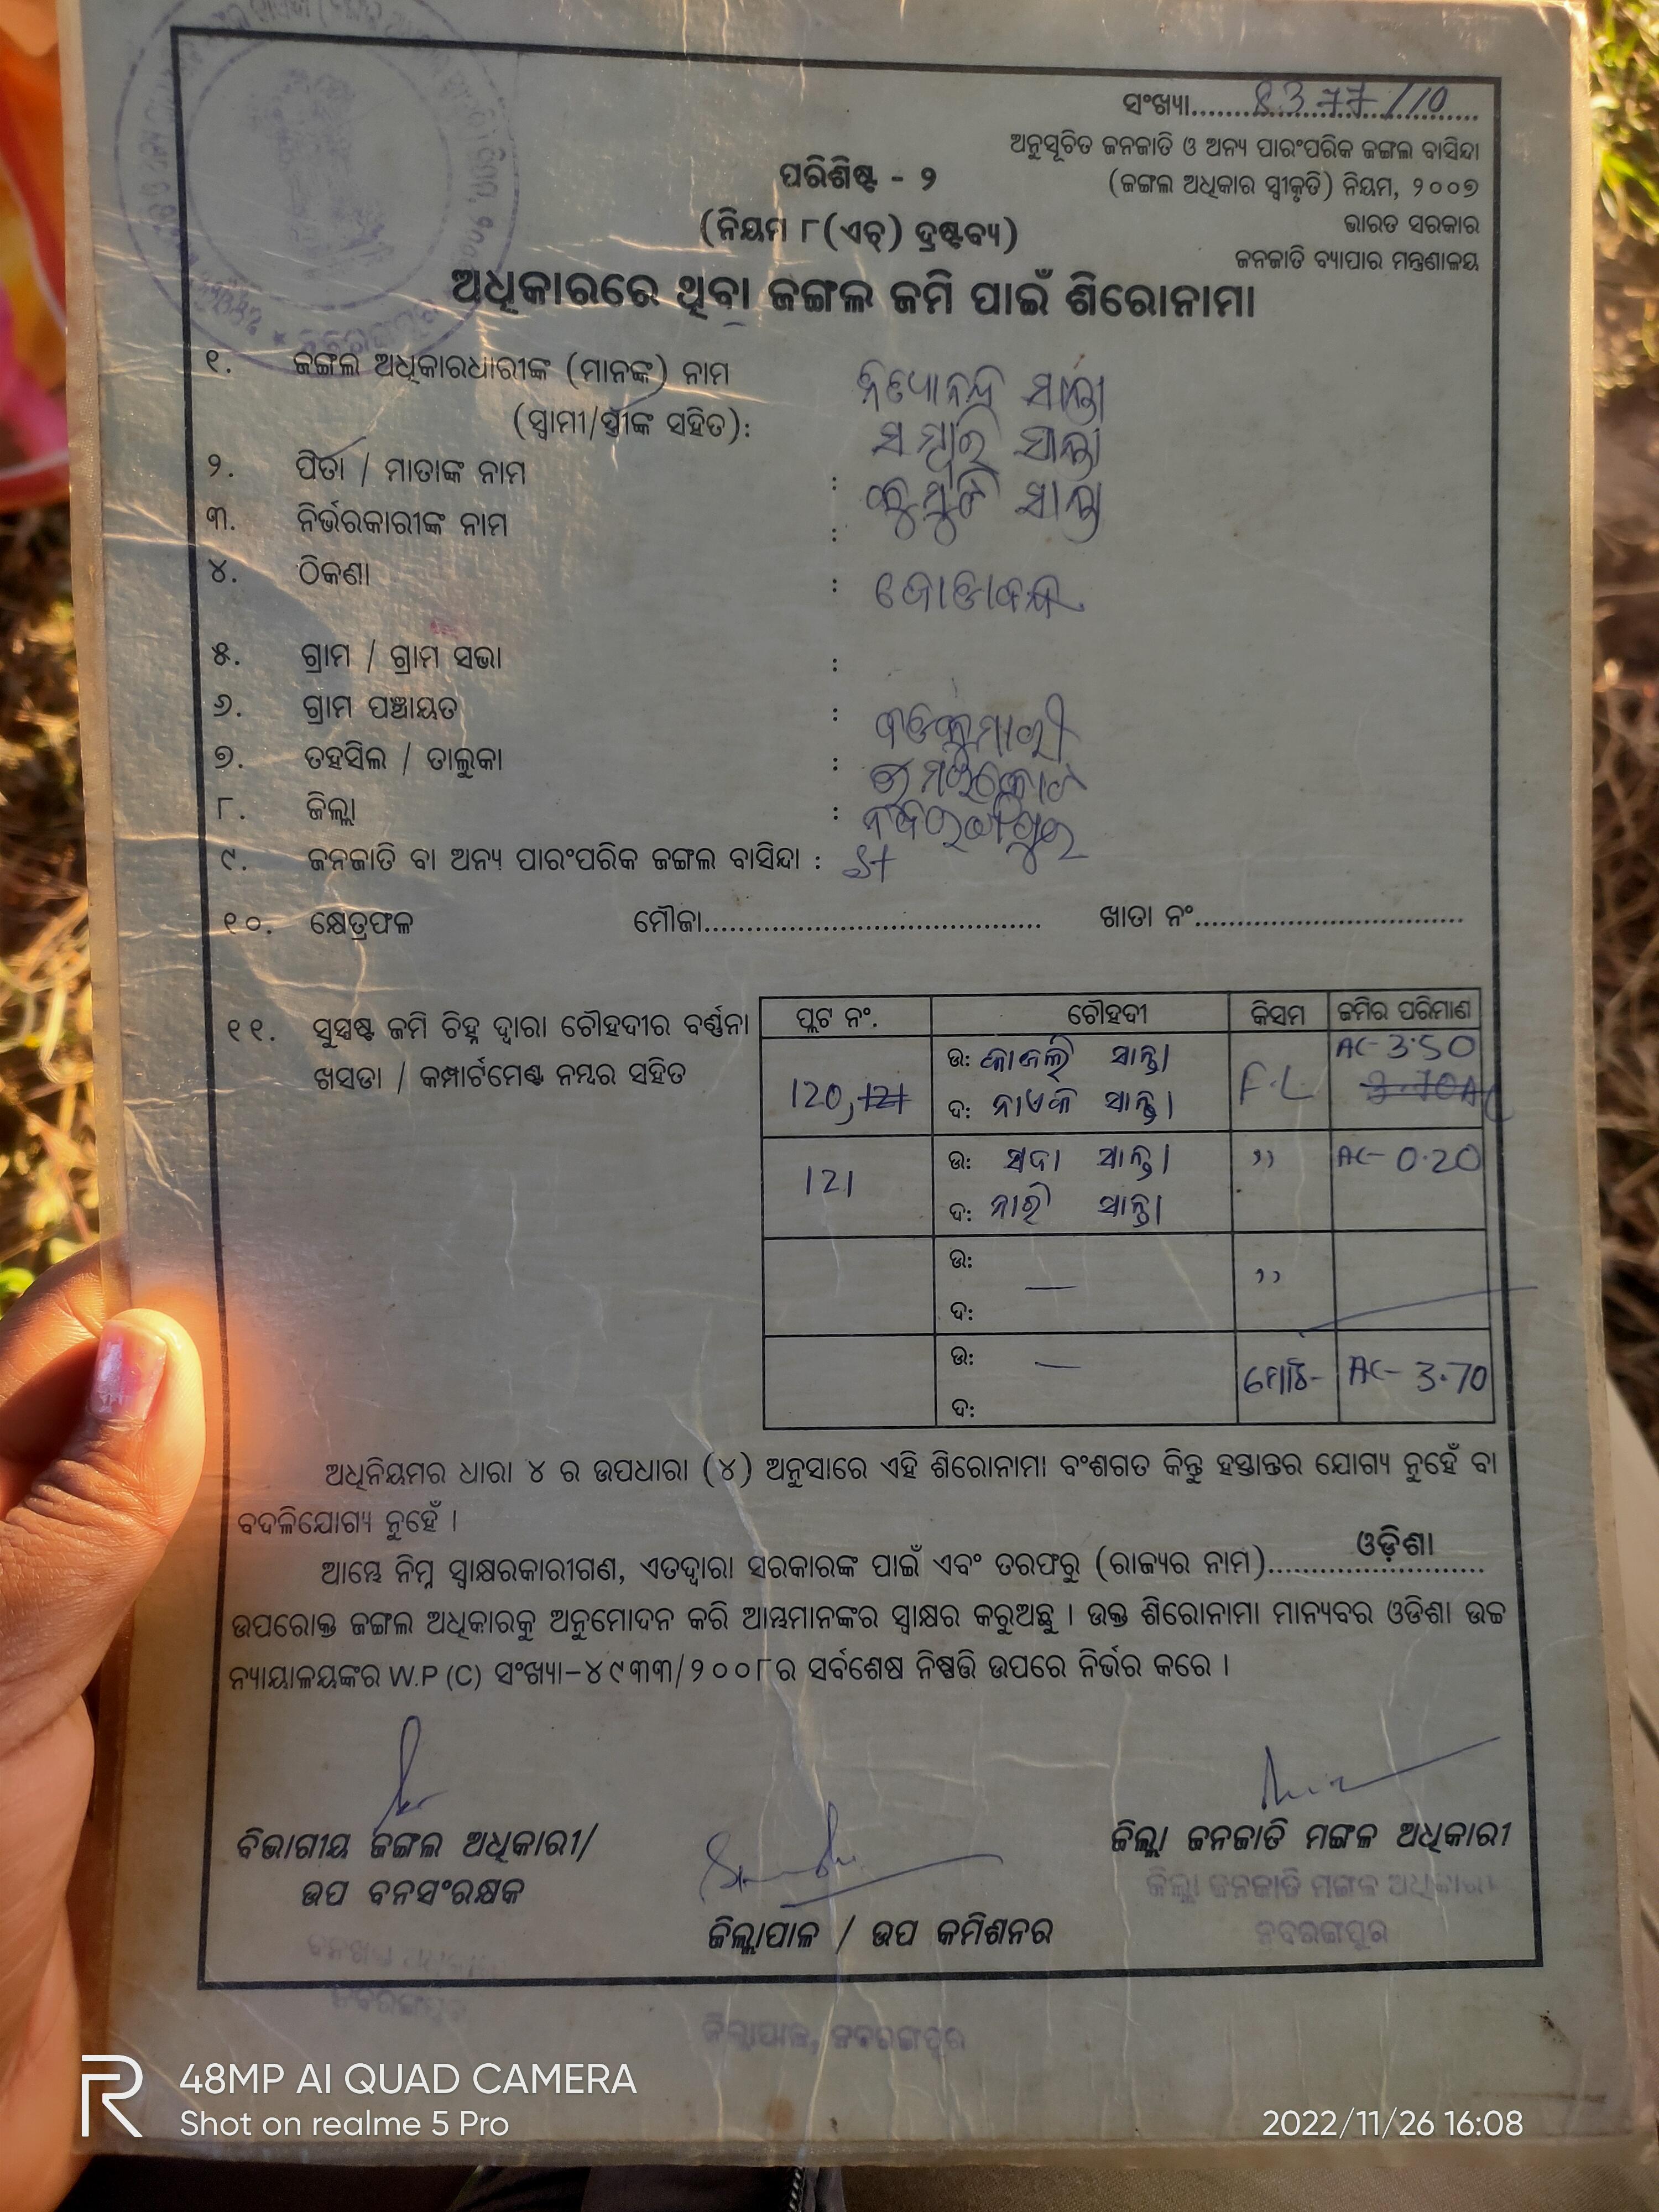 ସଂଖ୍ୟା........................
ଅନୁସୂଚିତ ଜନଜାତି ଓ ଅନ୍ୟ ପାରଂପରିକ ଜଙ୍ଗଲ ବାସିନ୍ଦା
(ଜଙ୍ଗଲ ଅଧିକାର ସ୍ୱୀକୃତି) ନିୟମ, ୨୦୦୭
ଭାରତ ସରକାର
ଜନଜାତି ବ୍ୟାପାର ମନ୍ତ୍ରଣାଳୟ
ପରିଶିଷ୍ଟ - ୨
(ନିୟମ ୮(ଏଚ୍) ଦ୍ରଷ୍ଟବ୍ୟ)
ଅଧିକାରରେ ଥିବା ଜଙ୍ଗଲ ଜମି ପାଇଁ ଶିରୋନାମା
୧. ଜଙ୍ଗଲ ଅଧିକାରଧାରୀଙ୍କ (ମାନଙ୍କ) ନାମ
(ସ୍ୱାମୀ/ସ୍ତ୍ରୀଙ୍କ ସହିତ):
୨. ପିତା / ମାତାଙ୍କ ନାମ :
୩. ନିର୍ଭରକାରୀଙ୍କ ନାମ :
୪. ଠିକଣା :
୫. ଗ୍ରାମ / ଗ୍ରାମ ସଭା :
୬. ଗ୍ରାମ ପଞ୍ଚାୟତ :
୭. ତହସିଲ / ତାଲୁକା : ଉମରକୋଟ
୮. ଜିଲ୍ଲା : ନବରଙ୍ଗପୁର
୯. ଜନଜାତି ବା ଅନ୍ୟ ପାରଂପରିକ ଜଙ୍ଗଲ ବାସିନ୍ଦା : ST
୧୦. କ୍ଷେତ୍ରଫଳ ମୌଜା........................ ଖାତା ନଂ........................
୧୧. ସୁସ୍ପଷ୍ଟ ଜମି ଚିହ୍ନ ଦ୍ୱାରା ଚୌହଦୀର ବର୍ଣ୍ଣନା
ଖସଡା / କମ୍ପାର୍ଟମେଣ୍ଟ ନମ୍ବର ସହିତ
ପ୍ଲଟ ନଂ. ଚୌହଦୀ କିସମ ଜମିର ପରିମାଣ
120, 121 ଉ: ସାନ୍ତା F.L AC- 3.50
ଦ: ସାନ୍ତା 3.70 AC
121 ଉ: ସଦା ସାନ୍ତା ,, AC- 0.20
ଦ: ସାନ୍ତା
ଉ: — ,,
ଦ:
ଉ: — ମୋଟ- AC- 3.70
ଦ:
ଅଧିନିୟମର ଧାରା ୪ ର ଉପଧାରା (୪) ଅନୁସାରେ ଏହି ଶିରୋନାମା ବଂଶଗତ କିନ୍ତୁ ହସ୍ତାନ୍ତର ଯୋଗ୍ୟ ନୁହେଁ ବା
ବଦଳିଯୋଗ୍ୟ ନୁହେଁ ।
ଆମ୍ଭେ ନିମ୍ନ ସ୍ୱାକ୍ଷରକାରୀଗଣ, ଏତଦ୍ୱାରା ସରକାରଙ୍କ ପାଇଁ ଏବଂ ତରଫରୁ (ରାଜ୍ୟର ନାମ)........ଓଡ଼ିଶା........
ଉପରୋକ୍ତ ଜଙ୍ଗଲ ଅଧିକାରକୁ ଅନୁମୋଦନ କରି ଆମ୍ଭମାନଙ୍କର ସ୍ୱାକ୍ଷର କରୁଅଛୁ । ଉକ୍ତ ଶିରୋନାମା ମାନ୍ୟବର ଓଡିଶା ଉଚ୍ଚ
ନ୍ୟାୟାଳୟଙ୍କର W.P (C) ସଂଖ୍ୟା-୪୯୩୩/୨୦୦୮ର ସର୍ବଶେଷ ନିଷ୍ପତ୍ତି ଉପରେ ନିର୍ଭର କରେ ।
ବିଭାଗୀୟ ଜଙ୍ଗଲ ଅଧିକାରୀ/
ଉପ ବନସଂରକ୍ଷକ
ଜିଲ୍ଲାପାଳ / ଉପ କମିଶନର
ଜିଲ୍ଲା ଜନଜାତି ମଙ୍ଗଳ ଅଧିକାରୀ
ଜିଲ୍ଲା ଜନଜାତି ମଙ୍ଗଳ ଅଧିକାରୀ
ନବରଙ୍ଗପୁର
ଜିଲ୍ଲାପାଳ, ନବରଙ୍ଗପୁର
48MP AI QUAD CAMERA
Shot on realme 5 Pro
2022/11/26 16:08